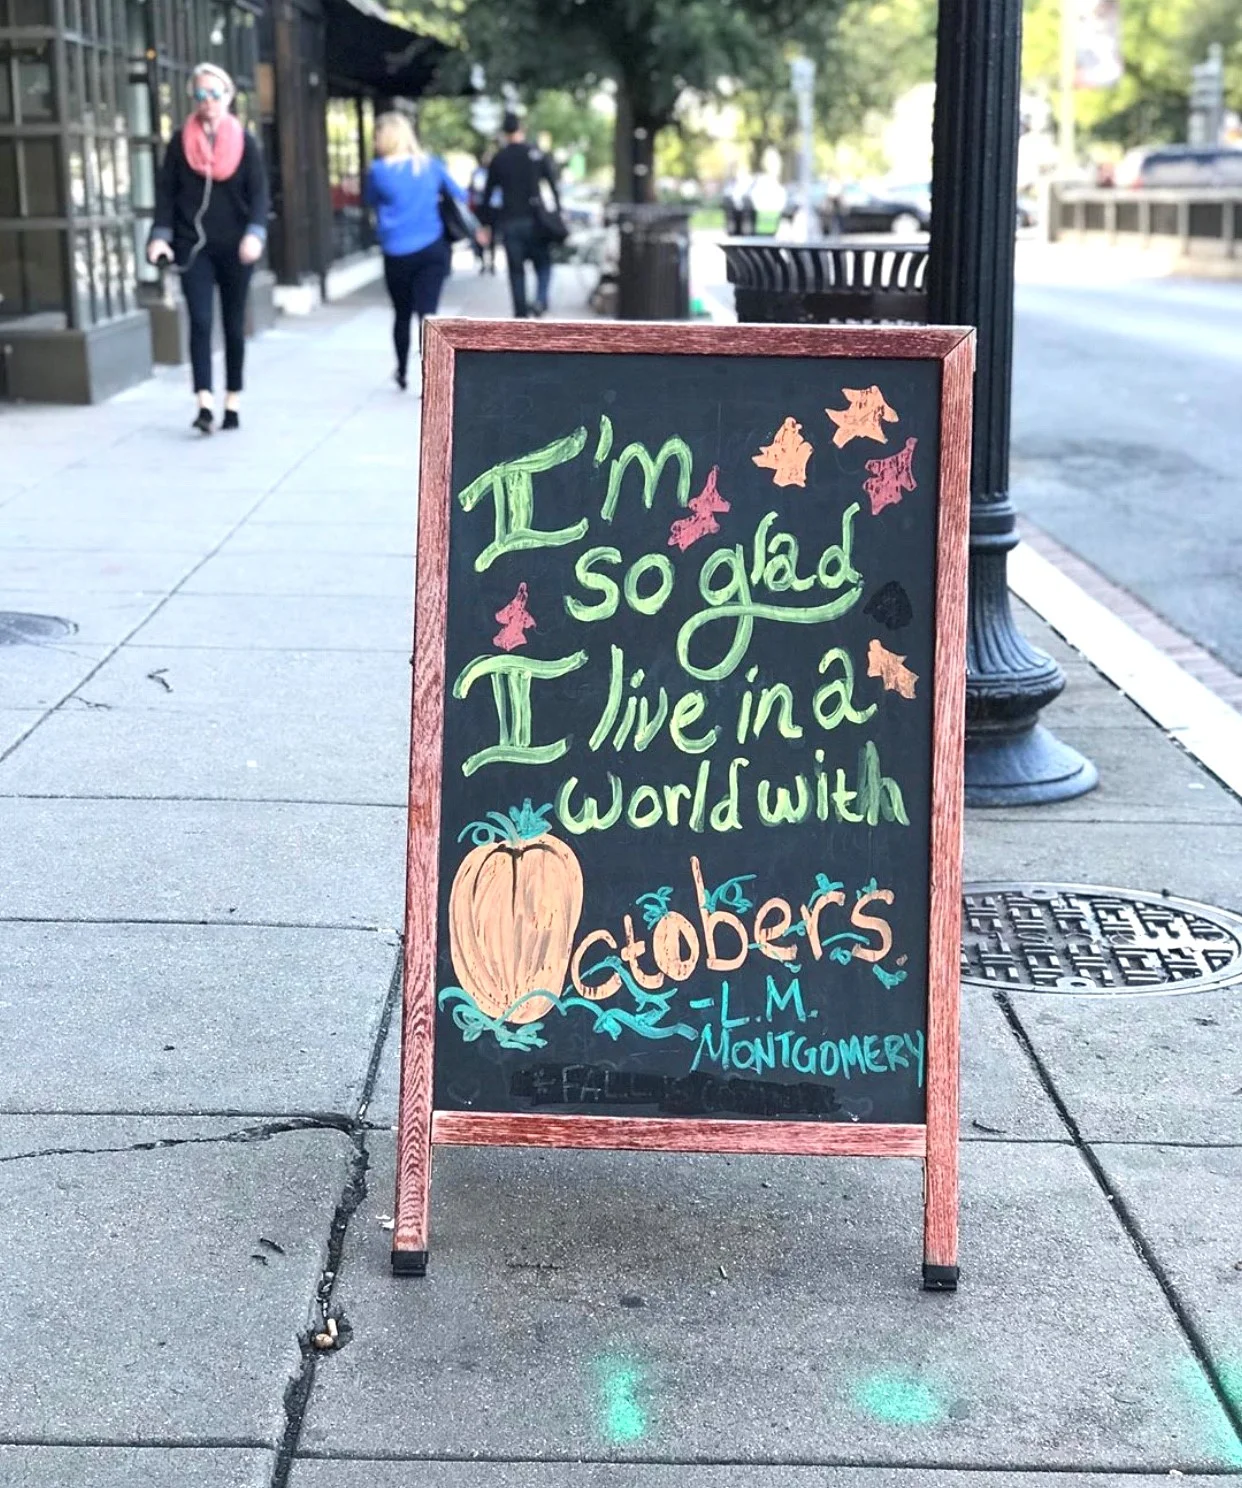 I'm
so glad
I live in a
world with
Octobers.
-L.M.
MONTGOMERY
#FALL